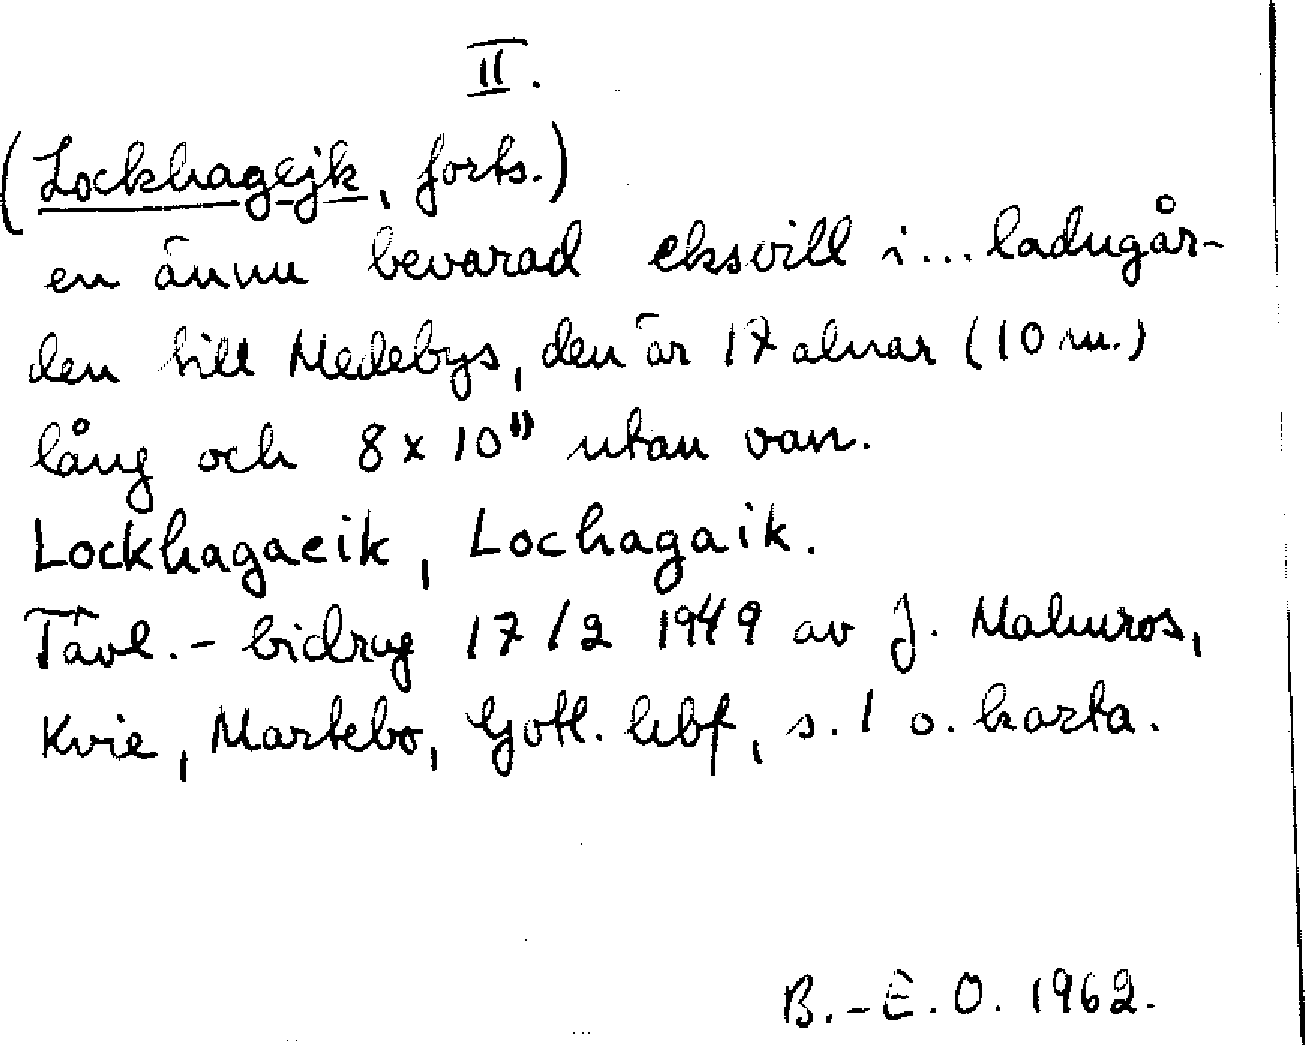 II.
(Lockhagejk, forts.)
en ännu bevarad eksvill i... ladugår-
den till Medebys, den är 17 alnar (10 m.)
lång och 8 x 10" utan van.
Lockhagaeik, Lochagaik.
Tävl.-bidrag 17/2 1949 av J. Malmros,
Kvie, Martebo, Gotl. lbf, s. 1 o. karta.
B.-E.O. 1962.